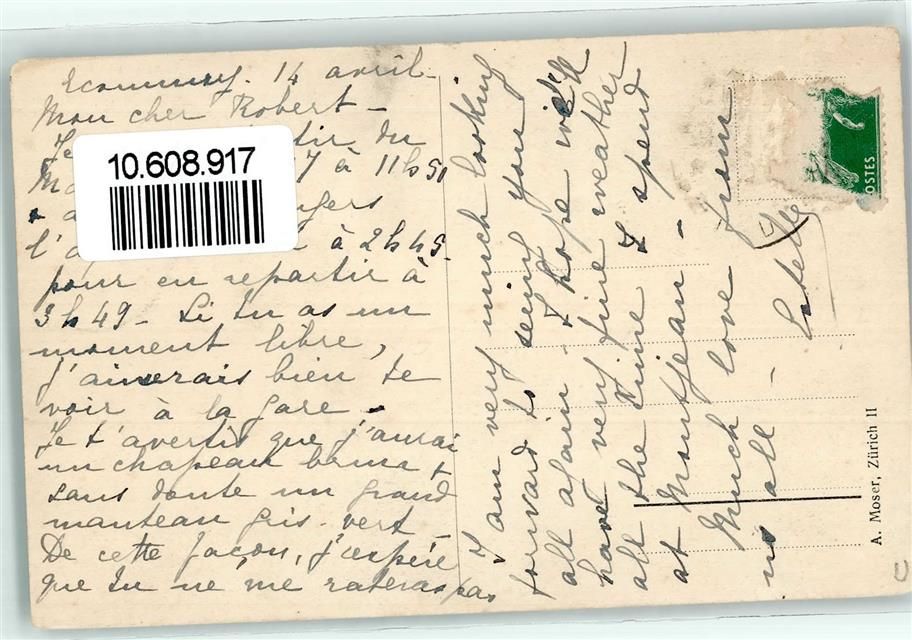 Ecommoy. 14 avril -
Mon cher Robert -
Je tir du
Ma 7 à 11h50
a ngers
l'a à 2h45
pour en repartir à
3h49 - Si tu as un
moment libre,
j'aimerais bien te
voir à la gare -
Je t'avertis que j'aurai
un chapeau brun &
sans doute un grand
manteau gris-vert
De cette façon, j'espère
que tu ne me rateras pas
10.608.917
I am very much looking
forward to seeing you
all again - I hope we'll
have very fine weather
all the time I spend
at Montjean -
Much love from
us all - Estelle
OSTES
A. Moser, Zürich II